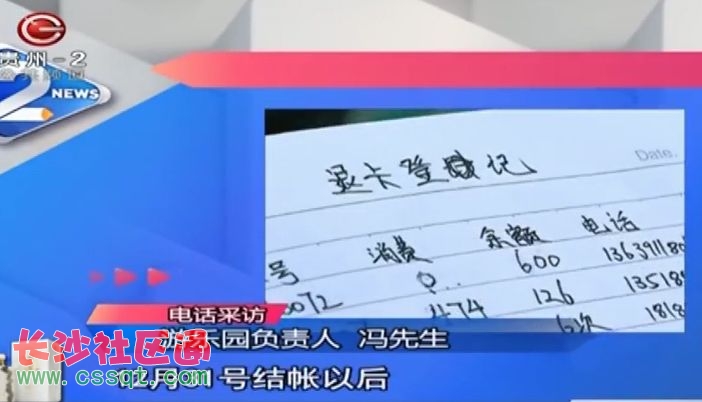 贵州-2
公共频道
2 NEWS
退卡登记
Date.
号 消费 余额 电话
0072 0.. 600 136391180
474 126 13518
6次 1818
电话采访
游乐园负责人 冯先生
月31号结帐以后
长沙社区通
www.cssqt.com